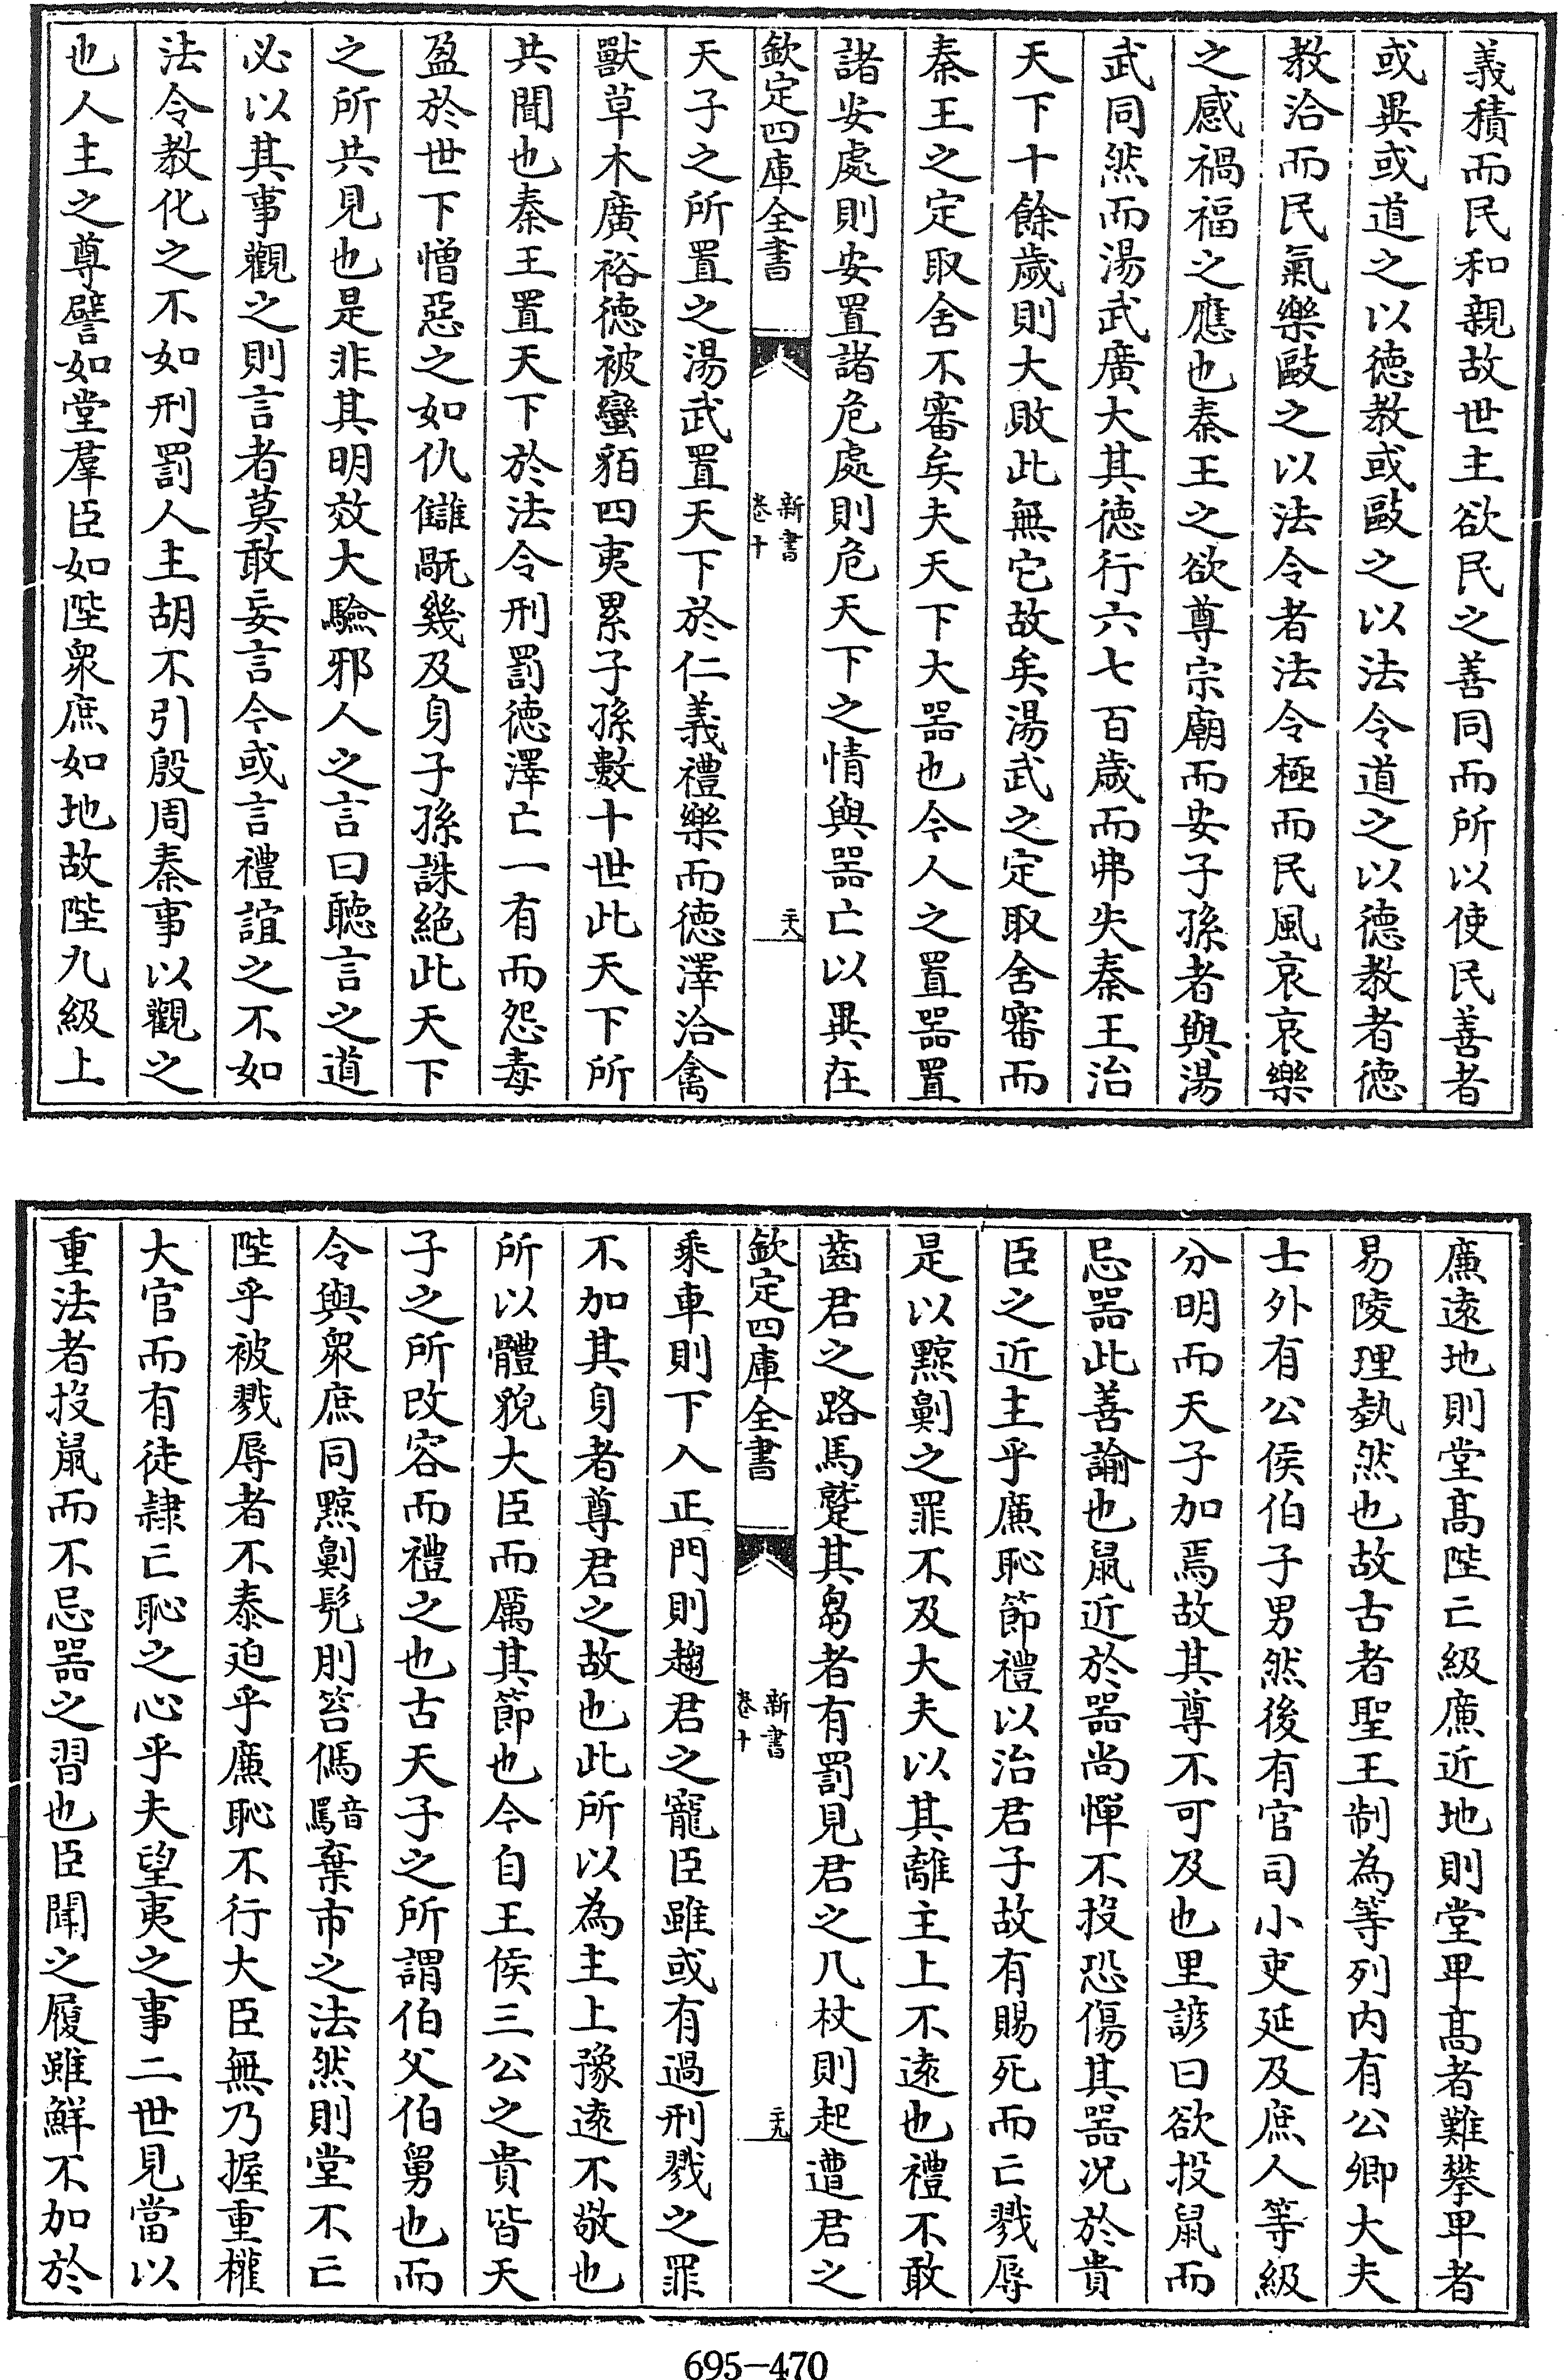 義積而民和親故世主欲民之善同而所以使民善者
或異或道之以德教或敺之以法令道之以德教者德
教洽而民氣樂敺之以法令者法令極而民風哀哀樂
之感禍福之應也秦王之欲尊宗廟而安子孫者與湯
武同然而湯武廣大其德行六七百歲而弗失秦王治
天下十餘歲則大敗此無它故矣湯武之定取舍審而
秦王之定取舍不審矣夫天下大噐也今人之置噐置
諸安處則安置諸危處則危天下之情與噐亡以異在
欽定四庫全書
新書
卷十
二六
天子之所置之湯武置天下於仁義禮樂而德澤洽禽
獸草木廣裕德被蠻貊四夷累子孫數十世此天下所
共聞也秦王置天下於法令刑罰德澤亡一有而怨毒
盈於世下憎惡之如仇讎旤幾及身子孫誅絶此天下
之所共見也是非其明效大驗邪人之言曰聽言之道
必以其事觀之則言者莫敢妄言今或言禮誼之不如
法令教化之不如刑罰人主胡不引殷周秦事以觀之
也人主之尊譬如堂羣臣如陛衆庶如地故陛九級上
廉逺地則堂髙陛亡級廉近地則堂卑髙者難攀卑者
易陵理埶然也故古者聖王制為等列内有公卿大夫
士外有公侯伯子男然後有官司小吏延及庶人等級
分明而天子加焉故其尊不可及也里諺曰欲投鼠而
忌噐此善諭也鼠近於噐尚憚不投恐傷其噐况於貴
臣之近主乎廉恥節禮以治君子故有賜死而亡戮辱
是以黥劓之罪不及大夫以其離主上不逺也禮不敢
齒君之路馬蹵其芻者有罰見君之几杖則起遭君之
欽定四庫全書
新書
卷十
二九
乘車則下入正門則趨君之寵臣雖或有過刑戮之罪
不加其身者尊君之故也此所以為主上豫逺不敬也
所以體貌大臣而厲其節也今自王侯三公之貴皆天
子之所改容而禮之也古天子之所謂伯父伯舅也而
令與衆庶同黥劓髠刖笞傌音罵棄市之法然則堂不亡
陛乎被戮辱者不泰迫乎廉恥不行大臣無乃握重權
大官而有徒隸亡恥之心乎夫望夷之事二世見當以
重法者投鼠而不忌噐之習也臣聞之履雖鮮不加於
695-470